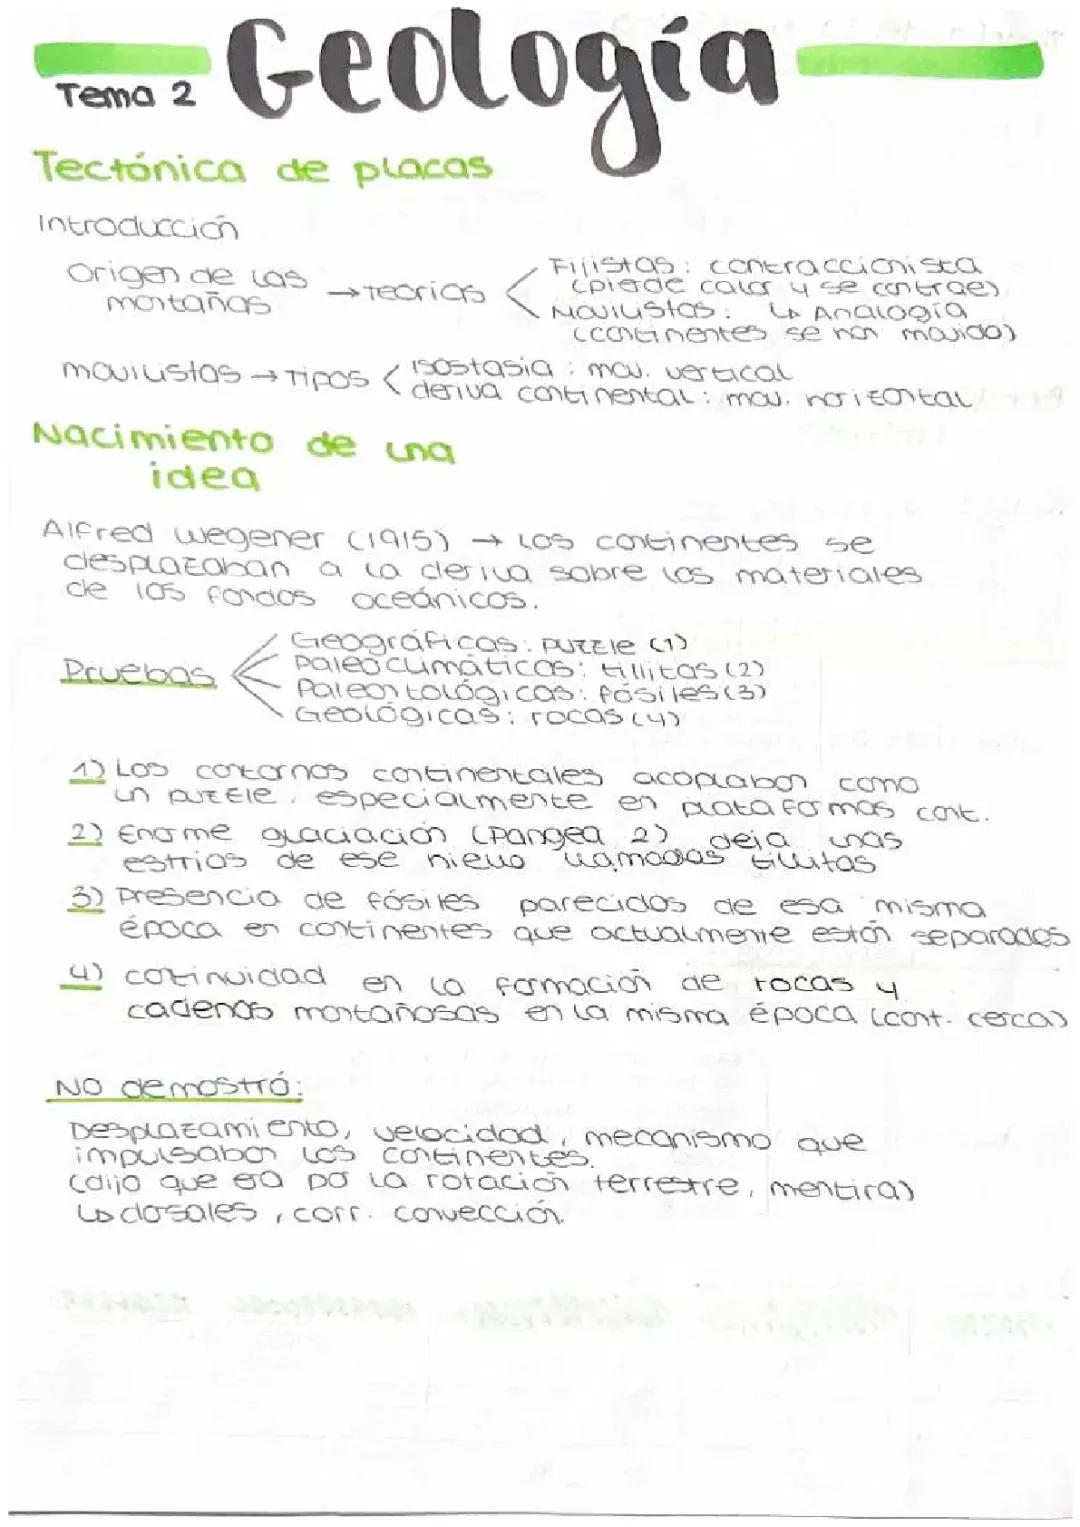 Geología
Tema 2
Tectónica de placas
Introducción
Origen de las montañas → teorías
Fijistas: contraccionista
(pierde calor y se contrae)
Movilistas: ↳ Analogía
(continentes se han movido)
movilistas → Tipos
isostasia: mov. vertical
deriva continental: mov. horizontal
Nacimiento de una
idea
Alfred Wegener (1915) → los continentes se
desplazaban a la deriva sobre los materiales
de los fondos oceánicos.
Pruebas
Geográficas: puzzle (1)
Paleoclimáticas: tillitas (2)
Paleontológicas: fósiles (3)
Geológicas: rocas (4)
1) Los contornos continentales acoplaban como
un puzzle, especialmente en plataformas cont.
2) Enorme glaciación (Pangea 2) deja unas
estrías de ese hielo llamadas tillitas
3) Presencia de fósiles parecidos de esa misma
época en continentes que actualmente están separados
4) continuidad en la formación de rocas y
cadenas montañosas en la misma época (cont. cerca)
No demostró:
Desplazamiento, velocidad, mecanismo que
impulsaban los continentes.
(dijo que era por la rotación terrestre, mentira)
↳ dorsales, corr. convección.